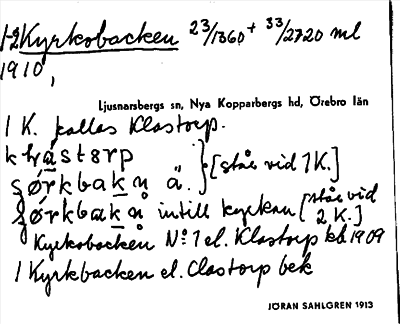 1-2 Kyrkobacken 23/1360 + 33/2720 ml
1910,
Ljusnarsbergs sn, Nya Kopparbergs hd, Örebro län
1 K. kallas Klastorp.
klrástorp } [står vid 1K.]
şørkbakn ä.
şørkbakå intill kyrkan [står vid 2 K.]
Kyrkobacken No 1 el. Klastorp kb 1909
1 Kyrkbacken el. Clastorp bek
JÖRAN SAHLGREN 1913